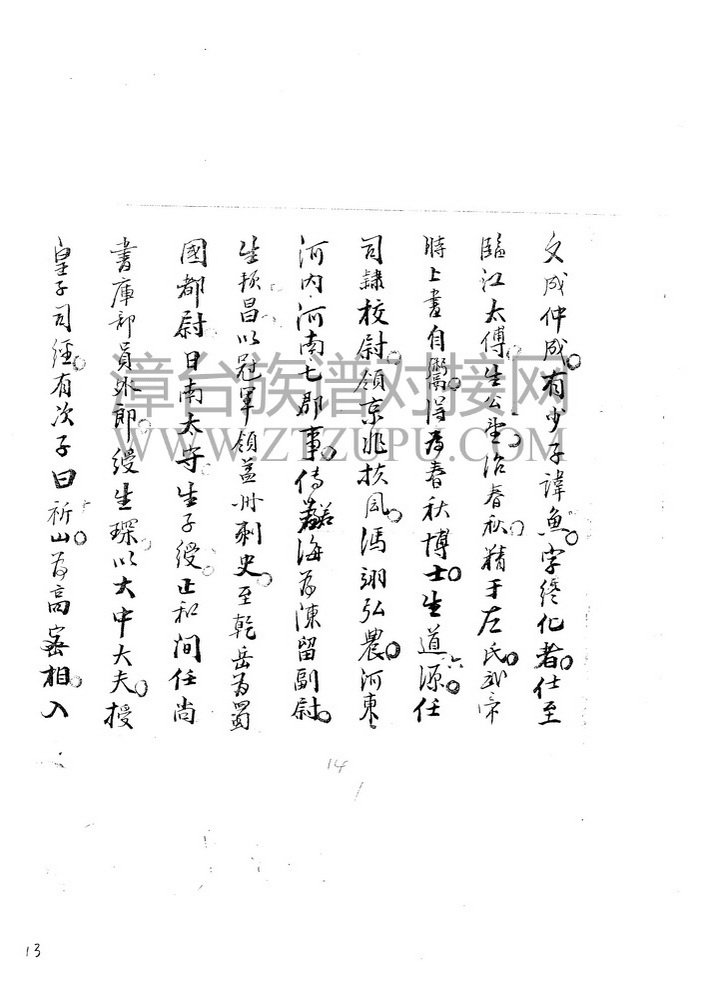 文成仲成。有少子諱魚。字修化者。仕至
臨江太傅。生公望。治春秋。精于左氏。武帝
時上書自鬻。得為春秋博士。生道源。六。任
司隸校尉。領京兆扶風。馮翊弘農。河東、
河內、河南七郡事。傳若海為陳留副尉。
生 昌。以冠軍領益州刺史。至乾岳為蜀
國都尉日南太守生子綬。正和間任尚
書庫部員外郎。綬生琛。以大中大夫。授
皇子司經。有次子曰祈山。為高密相。入
14
13
漳台族普对接网
WWW.ZTZUPU.COM